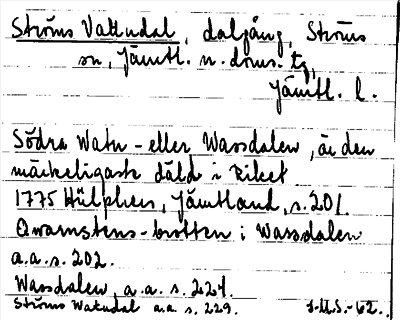 Ströms Vattudal, dalgång, Ströms
sn, Jämtl. n. doms. tg,
Jämtl. l.
Södra Watu- eller Wassdalen, är den
märkeligaste däld i Riket
1775 Hülphers, Jämtland, s. 201.
Qvarnstens-brotten i Wassdalen
a.a.s. 202.
Wassdalen, a.a. s. 224.
Ströms Watudal a.a. s. 229. J.U.S. -62.